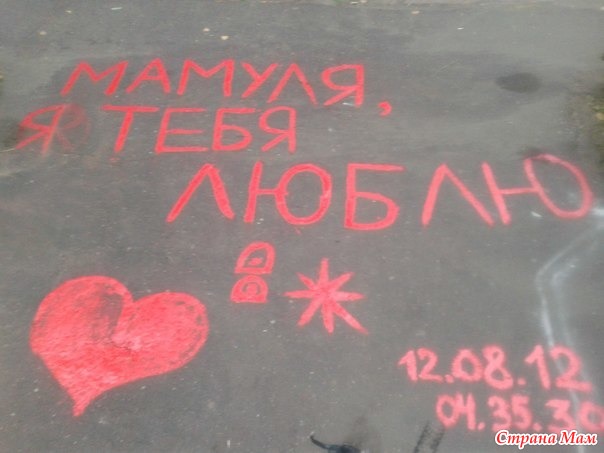 МАМУЛЯ,
Я ТЕБЯ
ЛЮБЛЮ
12.08.12
04.35.30
Страна Мам